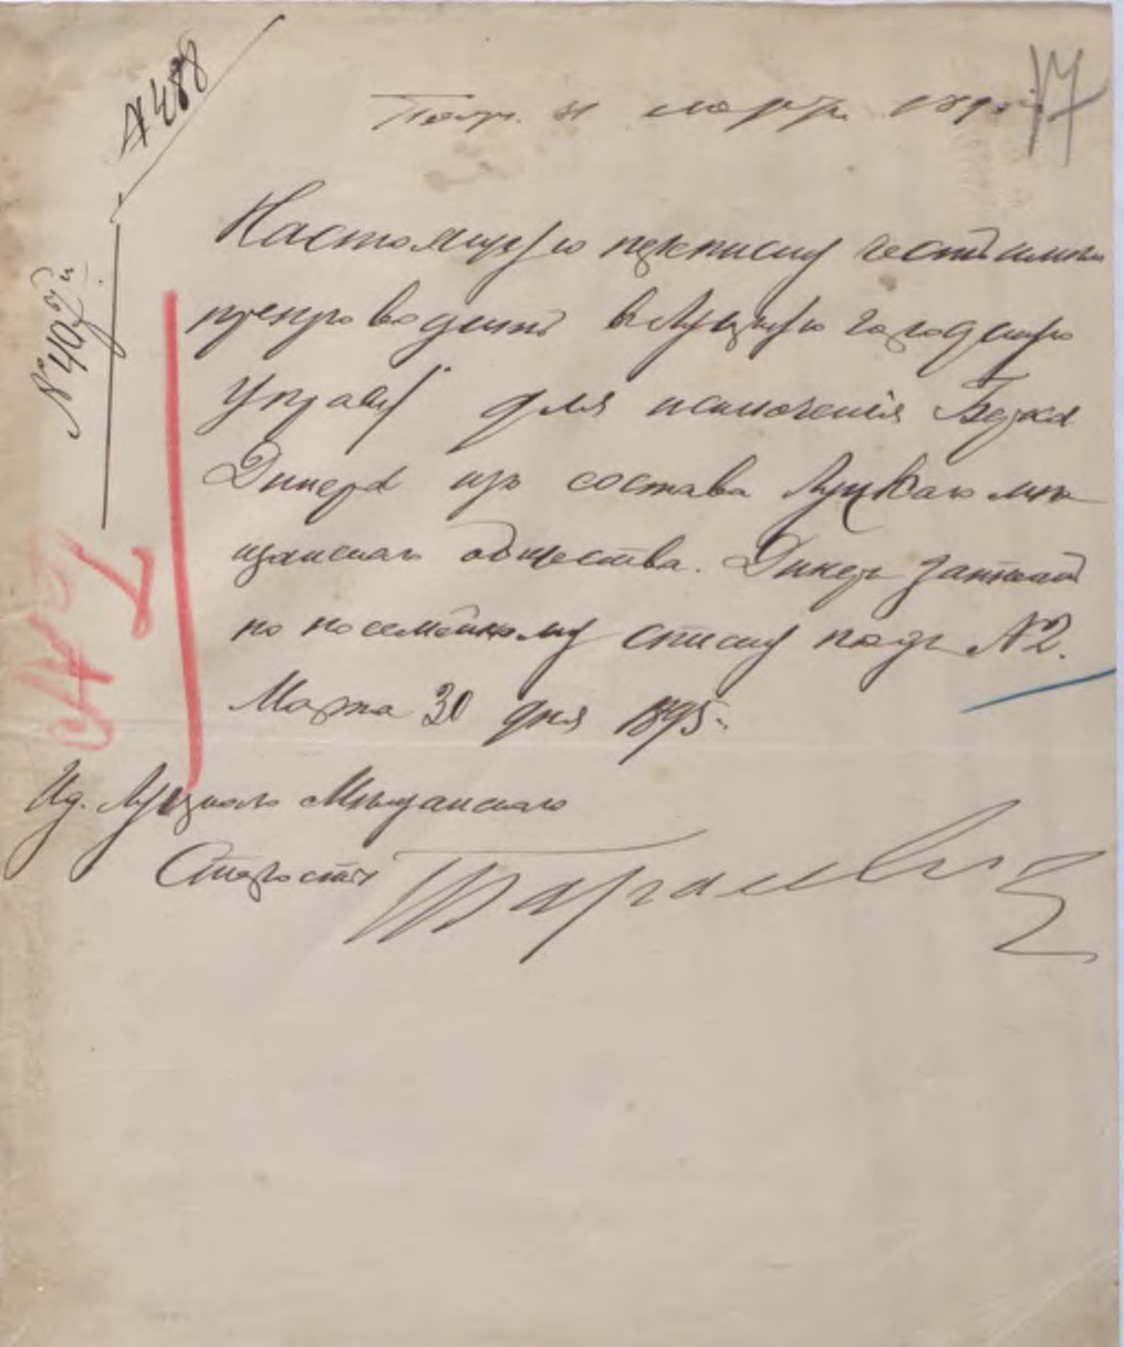 № 488
17
Пол. 31 марта 1895
№ 407
Настоящую переписку честь имею
препроводить в Луцкую городскую
Управу для исключенія Берка
Динера изъ состава Луцкаго мѣ
щанскаго общества. Динеръ записанъ
по посемейному списку подъ № 2.
Марта 30 дня 1895 г.
№ 2
Ид. Луцкаго Мѣщанскаго
Старосты